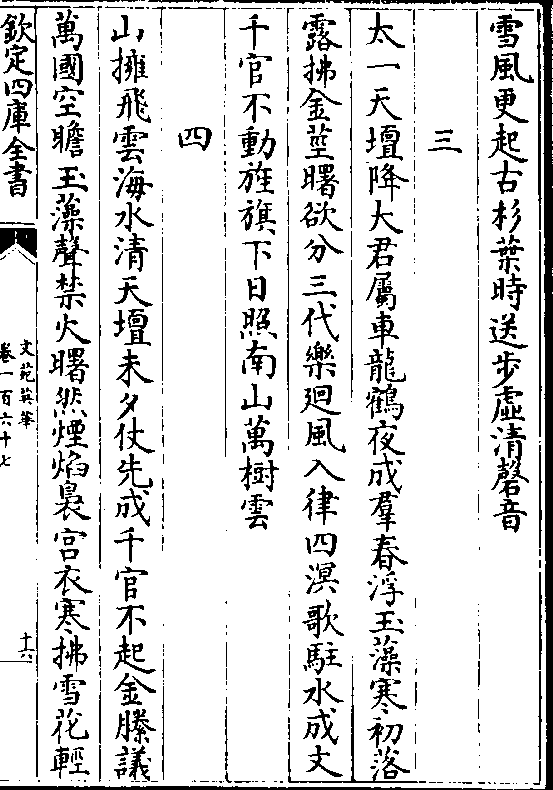 雪風更起古杉葉時送步虛清磬音
三
太一天壇降大君屬車龍鶴夜成羣春浮玉藻寒初落
露拂金莖曙欲分三代樂廻風入律四溟歌駐水成文
千官不動旌旗下日照南山萬樹雲
四
山擁飛雲海水清天壇未夕仗先成千官不起金縢議
萬國空瞻玉藻聲禁火曙然煙焰裊宮衣寒拂雪花輕
欽定四庫全書
文苑英華
卷一百六十七
十六